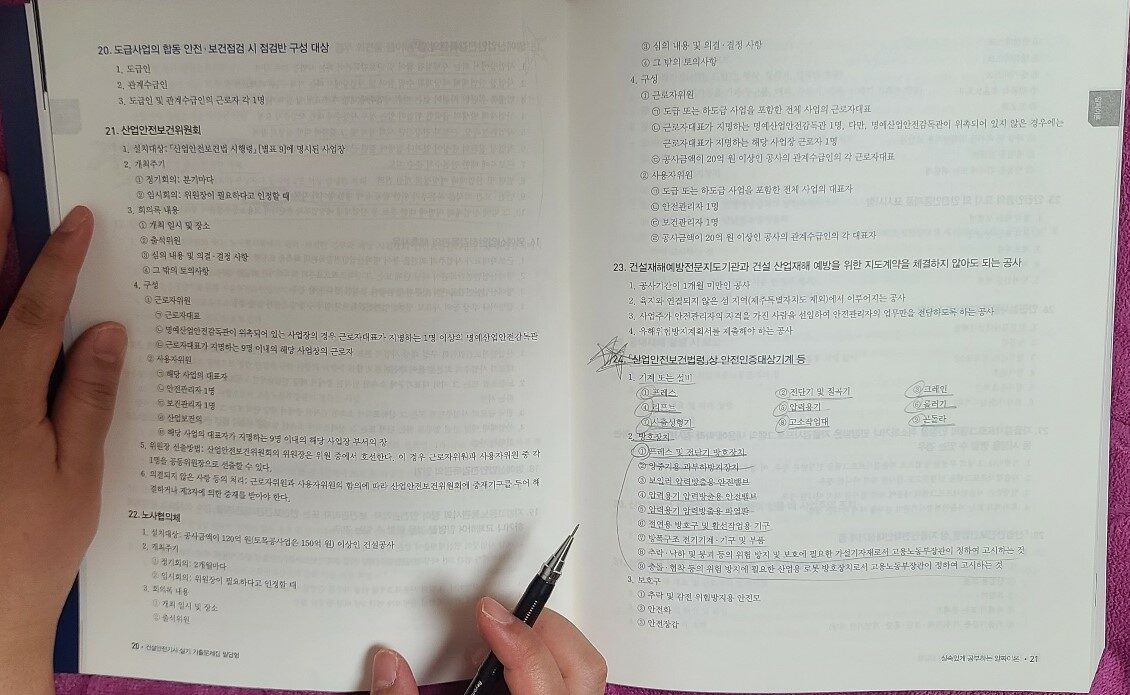 20. 도급사업의 합동 안전·보건점검 시 점검반 구성 대상
1. 도급인
2. 관계수급인
3. 도급인 및 관계수급인의 근로자 각 1명
21. 산업안전보건위원회
1. 설치대상: 「산업안전보건법 시행령」 [별표 9]에 명시된 사업장
2. 개최주기
① 정기회의: 분기마다
② 임시회의: 위원장이 필요하다고 인정할 때
3. 회의록 내용
① 개최 일시 및 장소
② 출석위원
③ 심의 내용 및 의결·결정 사항
④ 그 밖의 토의사항
4. 구성
① 근로자위원
㉠ 근로자대표
㉡ 명예산업안전감독관이 위촉되어 있는 사업장의 경우 근로자대표가 지명하는 1명 이상의 명예산업안전감독관
㉢ 근로자대표가 지명하는 9명 이내의 해당 사업장의 근로자
② 사용자위원
㉠ 해당 사업의 대표자
㉡ 안전관리자 1명
㉢ 보건관리자 1명
㉣ 산업보건의
㉤ 해당 사업의 대표자가 지명하는 9명 이내의 해당 사업장 부서의 장
5. 위원장 선출방법: 산업안전보건위원회의 위원장은 위원 중에서 호선한다. 이 경우 근로자위원과 사용자위원 중 각
1명을 공동위원장으로 선출할 수 있다.
6. 의결되지 않은 사항 등의 처리: 근로자위원과 사용자위원의 합의에 따라 산업안전보건위원회에 중재기구를 두어 해
결하거나 제3자에 의한 중재를 받아야 한다.
22. 노사협의체
1. 설치대상: 공사금액이 120억 원(토목공사업은 150억 원) 이상인 건설공사
2. 개최주기
① 정기회의: 2개월마다
② 임시회의: 위원장이 필요하다고 인정할 때
3. 회의록 내용
① 개최 일시 및 장소
② 출석위원
20 · 건설안전기사 실기 기출문제집 필답형
③ 심의 내용 및 의결·결정 사항
④ 그 밖의 토의사항
4. 구성
① 근로자위원
㉠ 도급 또는 하도급 사업을 포함한 전체 사업의 근로자대표
㉡ 근로자대표가 지명하는 명예산업안전감독관 1명, 다만, 명예산업안전감독관이 위촉되어 있지 않은 경우에는
근로자대표가 지명하는 해당 사업장 근로자 1명
㉢ 공사금액이 20억 원 이상인 공사의 관계수급인의 각 근로자대표
② 사용자위원
㉠ 도급 또는 하도급 사업을 포함한 전체 사업의 대표자
㉡ 안전관리자 1명
㉢ 보건관리자 1명
㉣ 공사금액이 20억 원 이상인 공사의 관계수급인의 각 대표자
23. 건설재해예방전문지도기관과 건설 산업재해 예방을 위한 지도계약을 체결하지 않아도 되는 공사
1. 공사기간이 1개월 미만인 공사
2. 육지와 연결되지 않은 섬 지역(제주특별자치도 제외)에서 이루어지는 공사
3. 사업주가 안전관리자의 자격을 가진 사람을 선임하여 안전관리자의 업무만을 전담하도록 하는 공사
4. 유해위험방지계획서를 제출해야 하는 공사
24. 「산업안전보건법령」상 안전인증대상기계 등
1. 기계 또는 설비
① 프레스 ② 전단기 및 절곡기 ③ 크레인
④ 리프트 ⑤ 압력용기 ⑥ 롤러기
⑦ 사출성형기 ⑧ 고소작업대 ⑨ 곤돌라
2. 방호장치
① 프레스 및 전단기 방호장치
② 양중기용 과부하방지장치
③ 보일러 압력방출용 안전밸브
④ 압력용기 압력방출용 안전밸브
⑤ 압력용기 압력방출용 파열판
⑥ 절연용 방호구 및 활선작업용 기구
⑦ 방폭구조 전기기계·기구 및 부품
⑧ 추락·낙하 및 붕괴 등의 위험 방지 및 보호에 필요한 가설기자재로서 고용노동부장관이 정하여 고시하는 것
⑨ 충돌·협착 등의 위험 방지에 필요한 산업용 로봇 방호장치로서 고용노동부장관이 정하여 고시하는 것
3. 보호구
① 추락 및 감전 위험방지용 안전모
② 안전화
③ 안전장갑
실속있게 공부하는 알짜이론 · 21